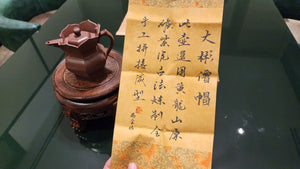 大彬僧帽
此壶選用黄龍山原
砖紫泥古法炼制全
手工拼接成型